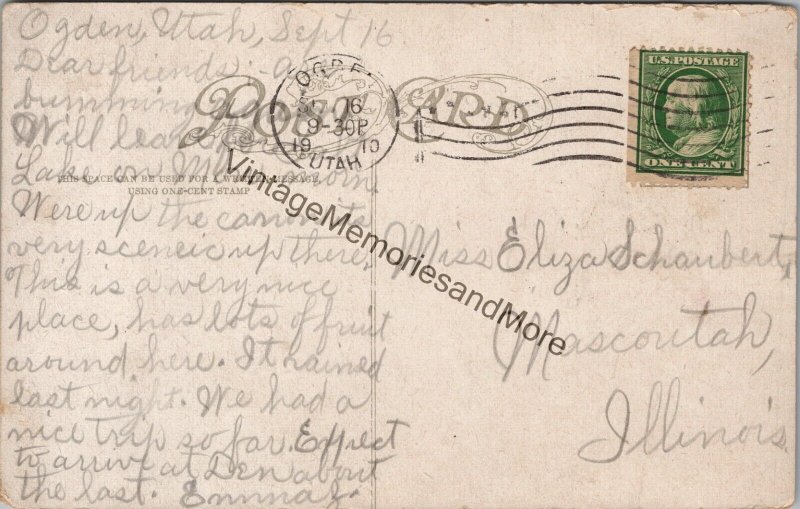 Ogden, Utah, Sept 16
Dear friends:
bumming
Will leave
Lake on morn.
Were up the canon its
very sceneic up there.
This is a very nice
place, has lots of fruit
around here. It rained
last night. We had a
nice trip so far. Expect
to arrive at Den about
the last. Emma J.
POST CARD
THIS SPACE CAN BE USED FOR A WRITTEN MESSAGE
USING ONE-CENT STAMP
OGDEN
16
9-30P
1910
UTAH
U.S. POSTAGE
ONE CENT
Miss Eliza Schaubert,
Mascoutah,
Illinois
VintageMemoriesandMore